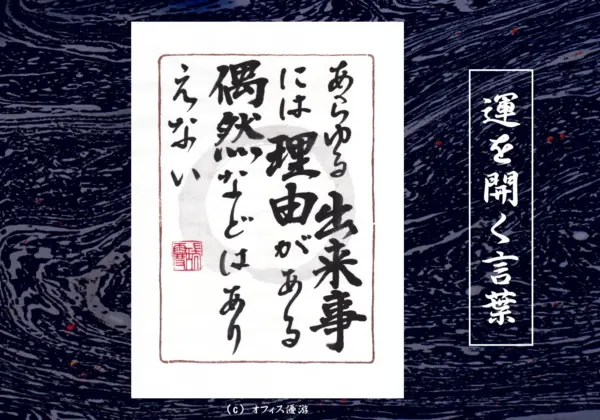 運を開く言葉
あらゆる出来事
には理由がある
偶然などはあり
えない
(c) オフィス優游